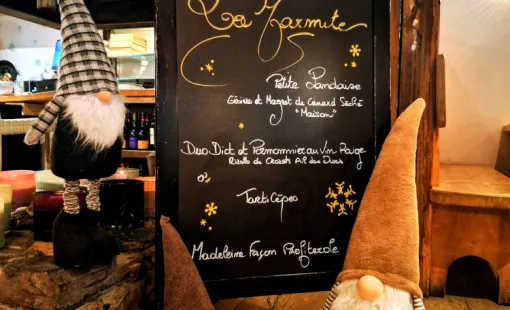 La Marmite
Petite Landaise
Gésiers et Magret de Canard Séché
"Maison"
Duo Diot et Pormonnier au Vin Rouge
Risotto de Crozets Ail des Ours
ou
Tarti Cèpes
Madeleine Façon Profiterole